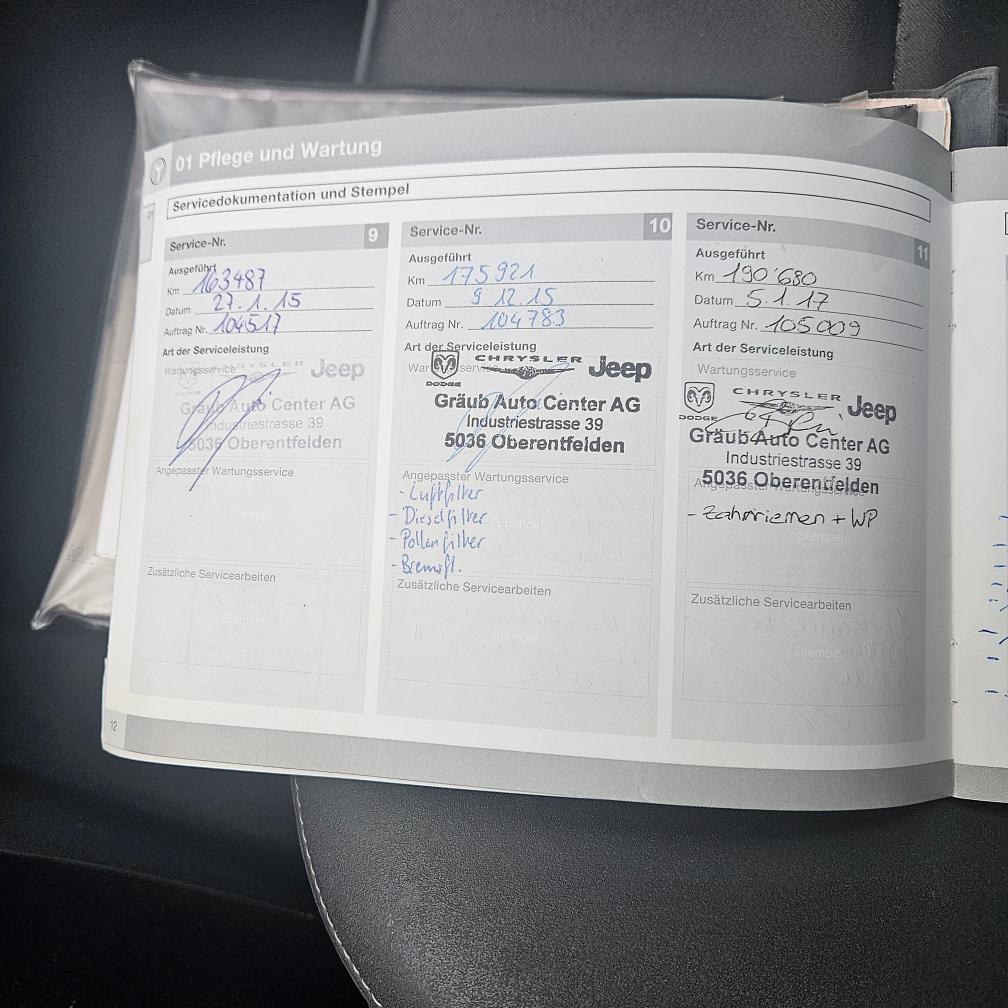 01 Pflege und Wartung
Servicedokumentation und Stempel
01
Service-Nr. 9
Ausgeführt
Km 163487
Datum 27.1.15
Auftrag Nr. 104517
Art der Serviceleistung
Wartungsservice
CHRYSLER Jeep
Gräub Auto Center AG
Industriestrasse 39
5036 Oberentfelden
Angepasster Wartungsservice
Stempel
Zusätzliche Servicearbeiten
Stempel
Service-Nr. 10
Ausgeführt
Km 175921
Datum 9.12.15
Auftrag Nr. 104783
Art der Serviceleistung
Wartungsservice
DODGE CHRYSLER Jeep
Gräub Auto Center AG
Industriestrasse 39
5036 Oberentfelden
Angepasster Wartungsservice
- Luftfilter
- Dieselfilter
Stempel
- Pollenfilter
- Bremsfl.
Zusätzliche Servicearbeiten
Stempel
Service-Nr. 11
Ausgeführt
Km 190'680
Datum 5.1.17
Auftrag Nr. 105009
Art der Serviceleistung
Wartungsservice
DODGE CHRYSLER Jeep
Gräub Auto Center AG
Industriestrasse 39
5036 Oberentfelden
Angepasster Wartungsservice
- Zahnriemen + WP
Stempel
Zusätzliche Servicearbeiten
Stempel
12